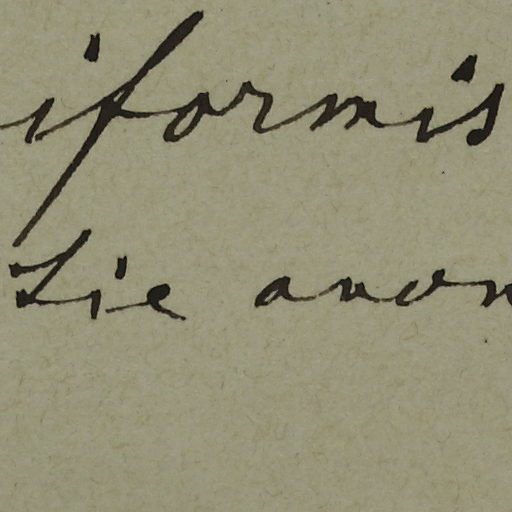 iformis
Lie anon